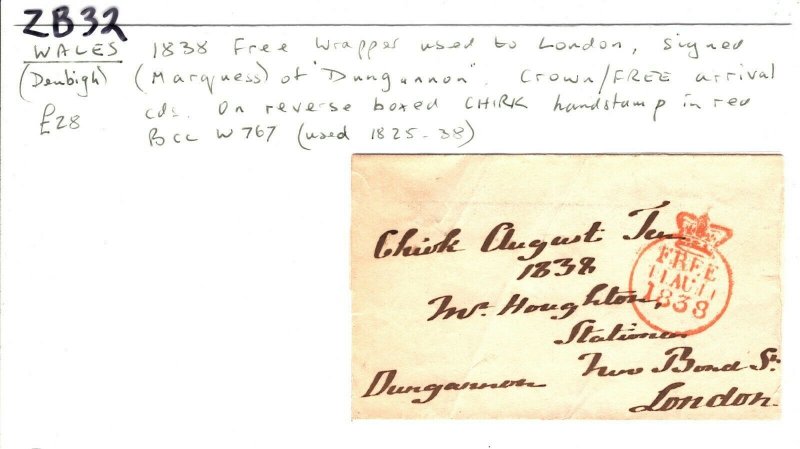 ZB32
WALES 1838 Free Wrapper used to London, signed
(Denbigh) (Marquess) of "Dungannon". Crown/FREE arrival
£28 cds. On reverse boxed CHIRK handstamp in red
BCC W767 (used 1825-38)
Chirk August Ten
1838
Mr. Houghton,
Stationer
New Bond St.
Dungannon
London.
FREE
11AU11
1838